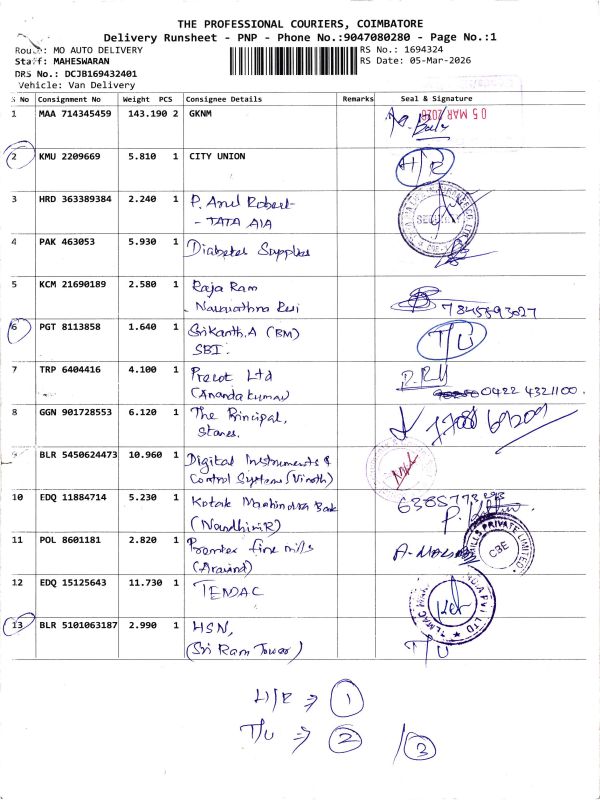 THE PROFESSIONAL COURIERS, COIMBATORE
Delivery Runsheet - PNP - Phone No.:9047080280 - Page No.:1
Route: MO AUTO DELIVERY RS No.: 1694324
Staff: MAHESWARAN RS Date: 05-Mar-2026
DRS No.: DCJB169432401
Vehicle: Van Delivery
S No Consignment No Weight PCS Consignee Details Remarks Seal & Signature
1 MAA 714345459 143.190 2 GKNM 05 MAR 2026
2 KMU 2209669 5.810 1 CITY UNION H/R
3 HRD 363389384 2.240 1 P. Anul Robert
- TATA AIA
4 PAK 463053 5.930 1 Diabetel Supplies
5 KCM 21690189 2.580 1 Raja Ram
7845593027
6 PGT 8113858 1.640 1 Srikanth.A (BM) T/U
SBI.
7 TRP 6404416 4.100 1 Precot Ltd
(Anandakumar) 0422 4321100.
8 GGN 901728553 6.120 1 The Principal,
Stanes.
9 BLR 5450624473 10.960 1 Digital Instruments &
Control Systems (Vinoth)
10 EDQ 11884714 5.230 1 Kotak Mahindra Bank
(Nandhini R)
11 POL 8601181 2.820 1 Premier fine mills
(Aravind)
MILLS PRIVATE LIMITED
CBE
12 EDQ 15125643 11.730 1 TEMAC
13 BLR 5101063187 2.990 1 HSN, T/U
(Sri Ram Tower)
H/R ⇒ 1
T/U ⇒ 2 /3